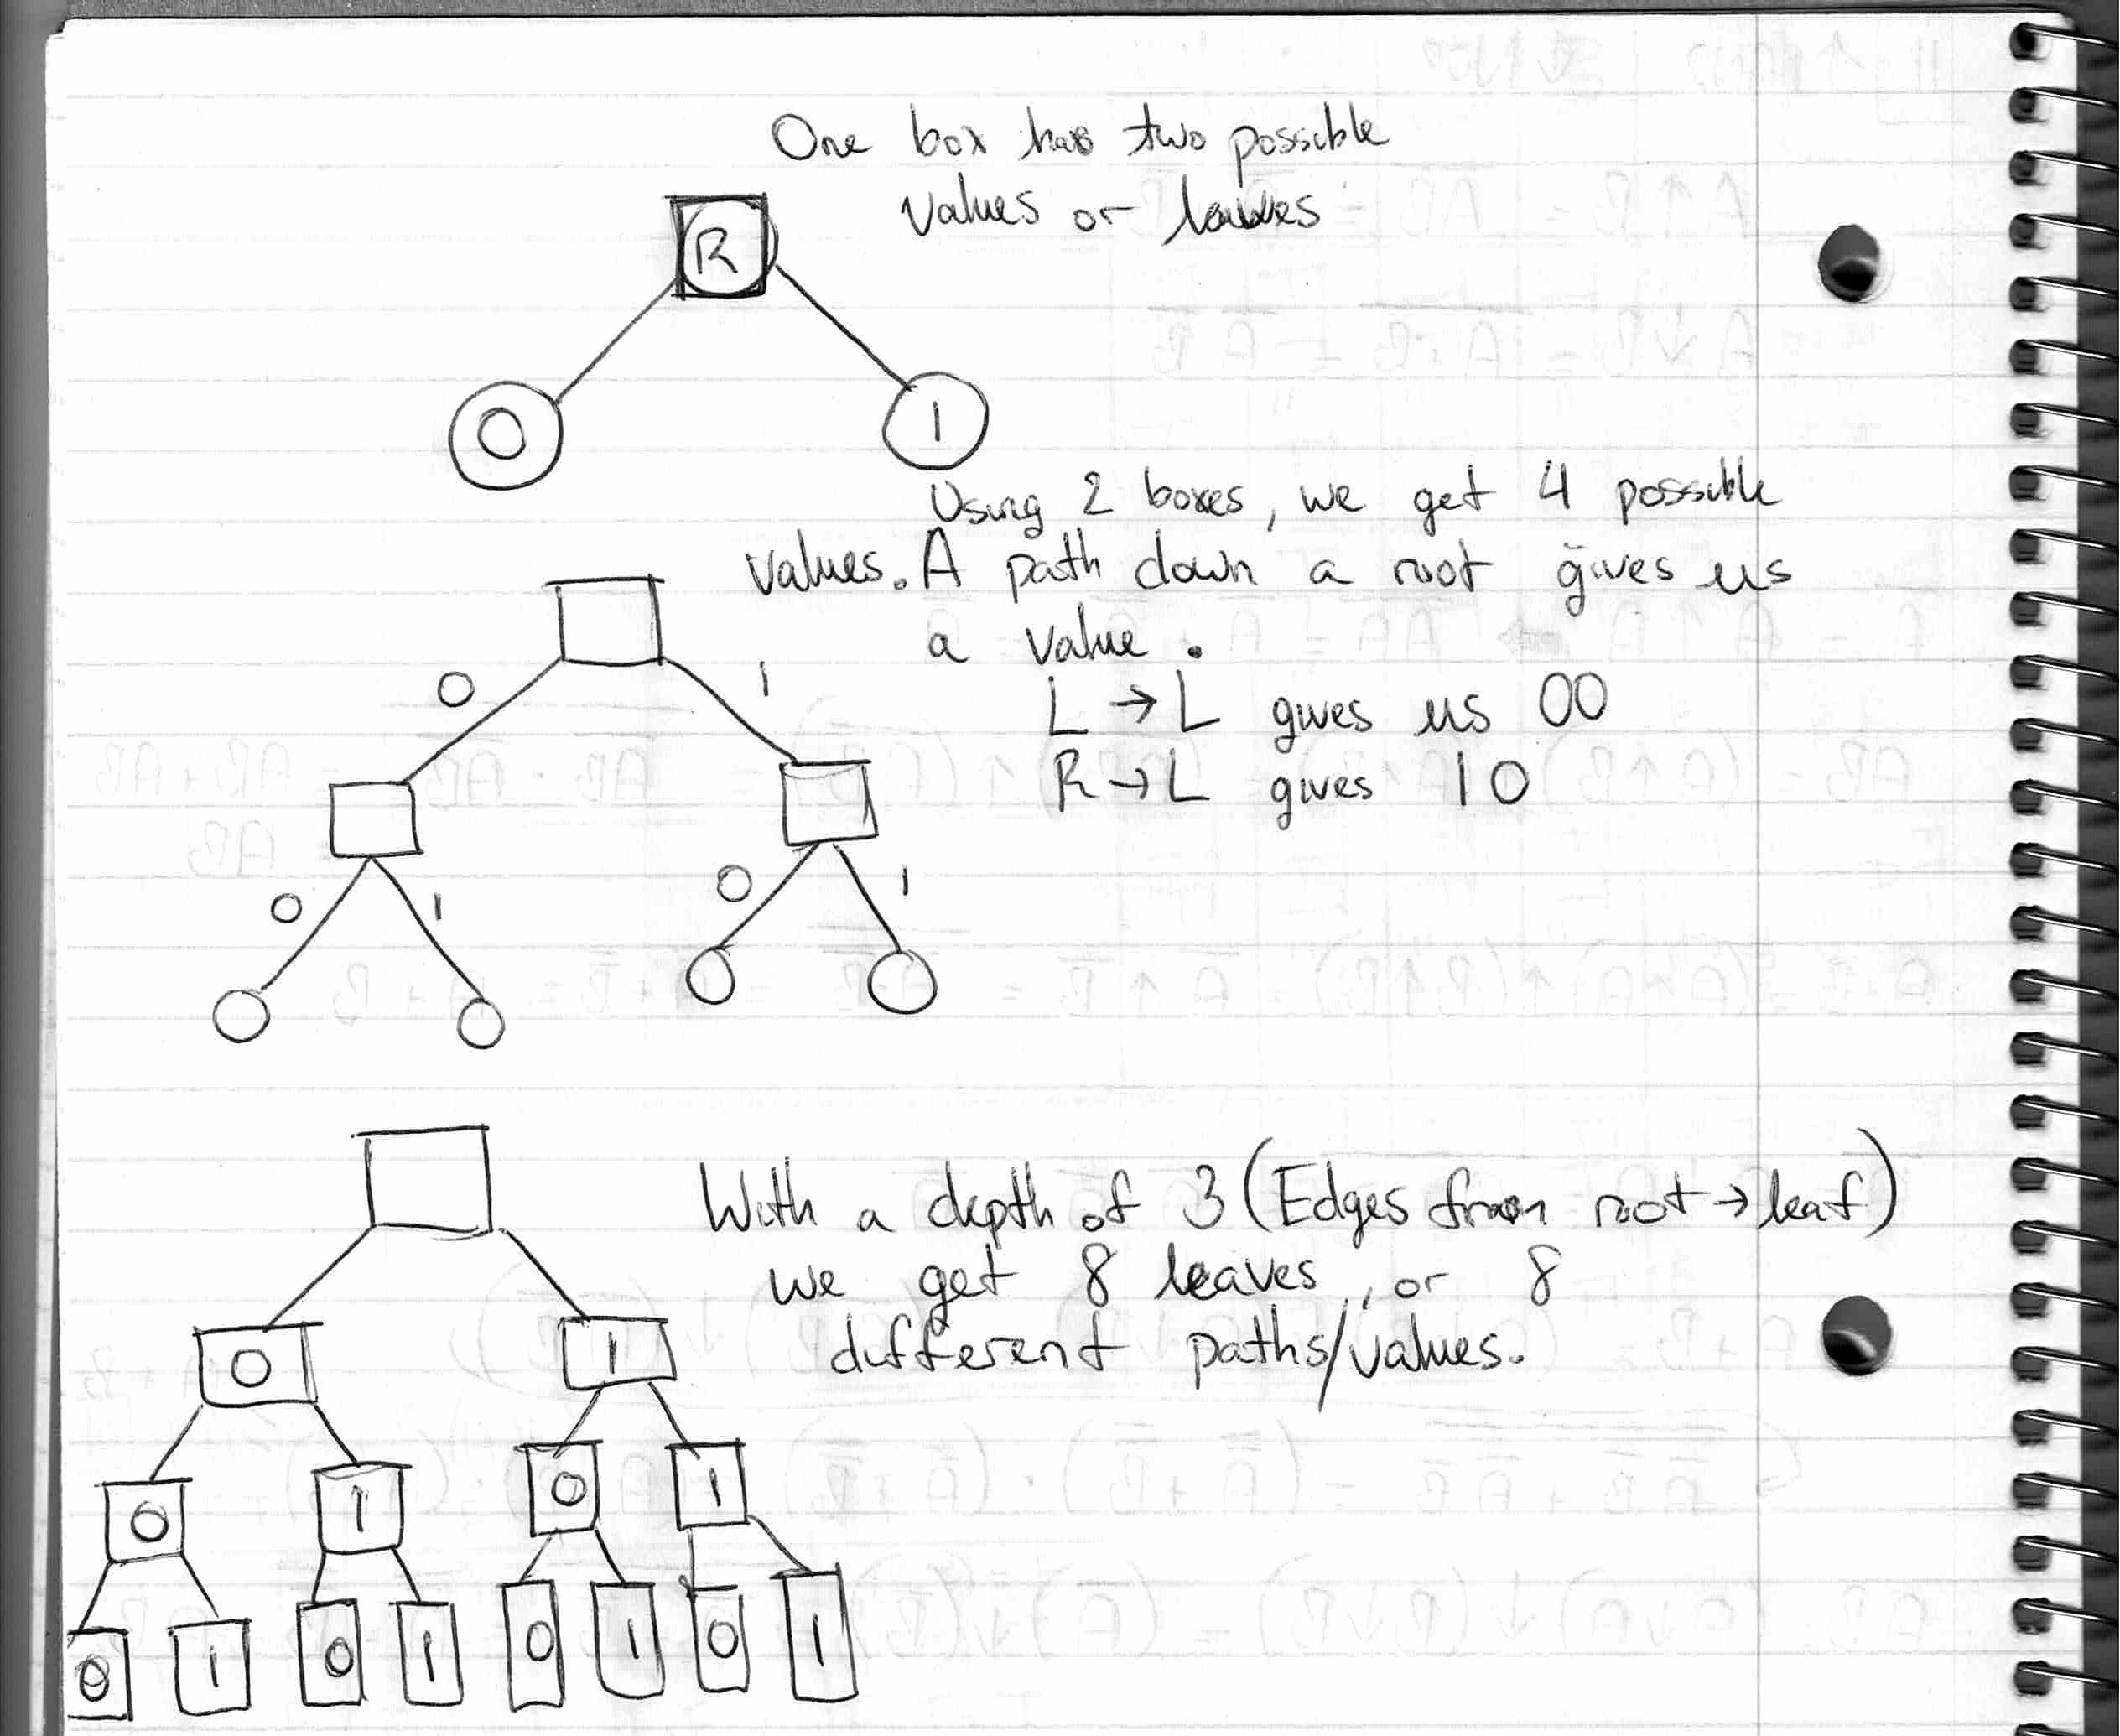 One box has two possible
values or
R
0 1
Using 2 boxes, we get 4 possible
values. A path down a root gives us
a value.
L → L gives us 00
R → L gives 10
0 1
0 1 0 1
With a depth of 3 (Edges from root → leaf)
we get 8 leaves, or 8
different paths/values.
0 1
0 1 0 1
0 1 0 1 0 1 0 1